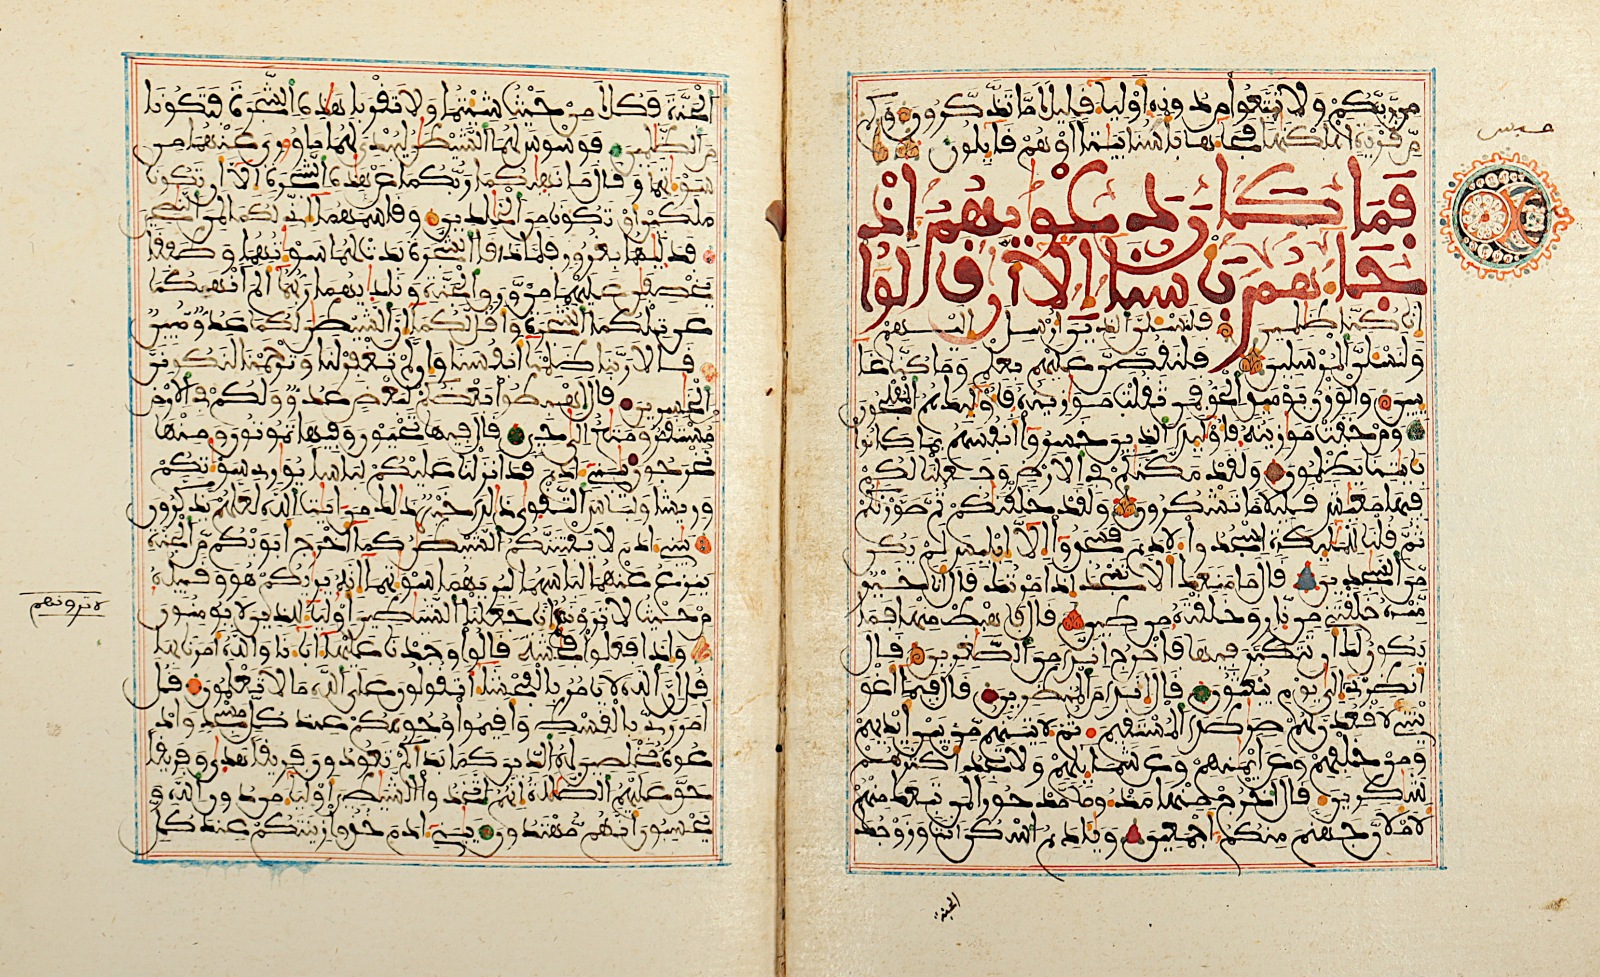 من ربكم ولا تتبعوا من دونه أولياء قليلا ما تذكرون وكم
من قرية أهلكنها فجاءها بأسنا بيتا أو هم قائلون
فما كان دعويهم إذ
جاءهم بأسنا إلا أن قالوا
إنا كنا ظلمين فلنسئلن الذين أرسل إليهم
ولنسئلن المرسلين فلنقصن عليهم بعلم وما كنا غا
ئبين والوزن يومئذ الحق فمن ثقلت موازينه فأولئك هم المفلحون
ومن خفت موازينه فأولئك الذين خسروا أنفسهم بما كانوا
بآيتنا يظلمون ولقد مكنكم في الأرض وجعلنا لكم
فيها معيش قليلا ما تشكرون ولقد خلقنكم ثم صورنكم
ثم قلنا للملئكة اسجدوا لآدم فسجدوا إلا إبليس لم يكن
من السجدين قال ما منعك ألا تسجد إذ أمرتك قال أنا خير
منه خلقتني من نار وخلقته من طين قال فاهبط منها فما
يكون لك أن تتكبر فيها فاخرج إنك من الصغرين قال
أنظرني إلى يوم يبعثون قال إنك من المنظرين قال فبما أغو
يتني لأقعدن لهم صرطك المستقيم ثم لآتينهم من بين أيديهم
ومن خلفهم وعن أيمنهم وعن شمائلهم ولا تجد أكثرهم
شكرين قال اخرج منها مذءوما مدحورا لمن تبعك منهم
لأملأن جهنم منكم أجمعين ويآدم اسكن أنت وزوجك
الجنة
حبس
الجنة فكلا من حيث شئتما ولا تقربا هذه الشجرة فتكونا
من الظلمين فوسوس لهما الشيطن ليبدي لهما ما وري عنهما من
سوءتهما وقال ما نهيكما ربكما عن هذه الشجرة إلا أن تكونا
ملكين أو تكونا من الخلدين وقاسمهما إني لكما لمن النصحين
فدليهما بغرور فلما ذاقا الشجرة بدت لهما سوءتهما وطفقا
يخصفن عليهما من ورق الجنة وناديهما ربهما ألم أنهكما
عن تلكما الشجرة وأقل لكما إن الشيطن لكما عدو مبين
قالا ربنا ظلمنا أنفسنا وإن لم تغفر لنا وترحمنا لنكونن
من الخسرين قال اهبطوا بعضكم لبعض عدو ولكم في الأرض
مستقر ومتع إلى حين قال فيها تحيون وفيها تموتون ومنها
تخرجون يبني آدم قد أنزلنا عليكم لباسا يوري سوءتكم
وريشا ولباس التقوى ذلك خير ذلك من آيت الله لعلهم يذكرون
يبني آدم لا يفتننكم الشيطن كما أخرج أبويكم من الجنة
ينزع عنهما لباسهما ليريهما سوءتهما إنه يريكم هو وقبيله
من حيث لا ترونهم إنا جعلنا الشيطين أولياء للذين لا يومنون
وإذا فعلوا فحشة قالوا وجدنا عليها آباءنا والله أمرنا بها
قل إن الله لا يأمر بالفحشاء أتقولون على الله ما لا تعلمون قل
أمر ربي بالقسط وأقيموا وجوهكم عند كل مسجد واد
عوه مخلصين له الدين كما بدأكم تعودون فريقا هدى وفريقا
حق عليهم الضللة إنهم اتخذوا الشيطين أولياء من دون الله و
يحسبون أنهم مهتدون يبني آدم خذوا زينتكم عند كل
لا ترونهم